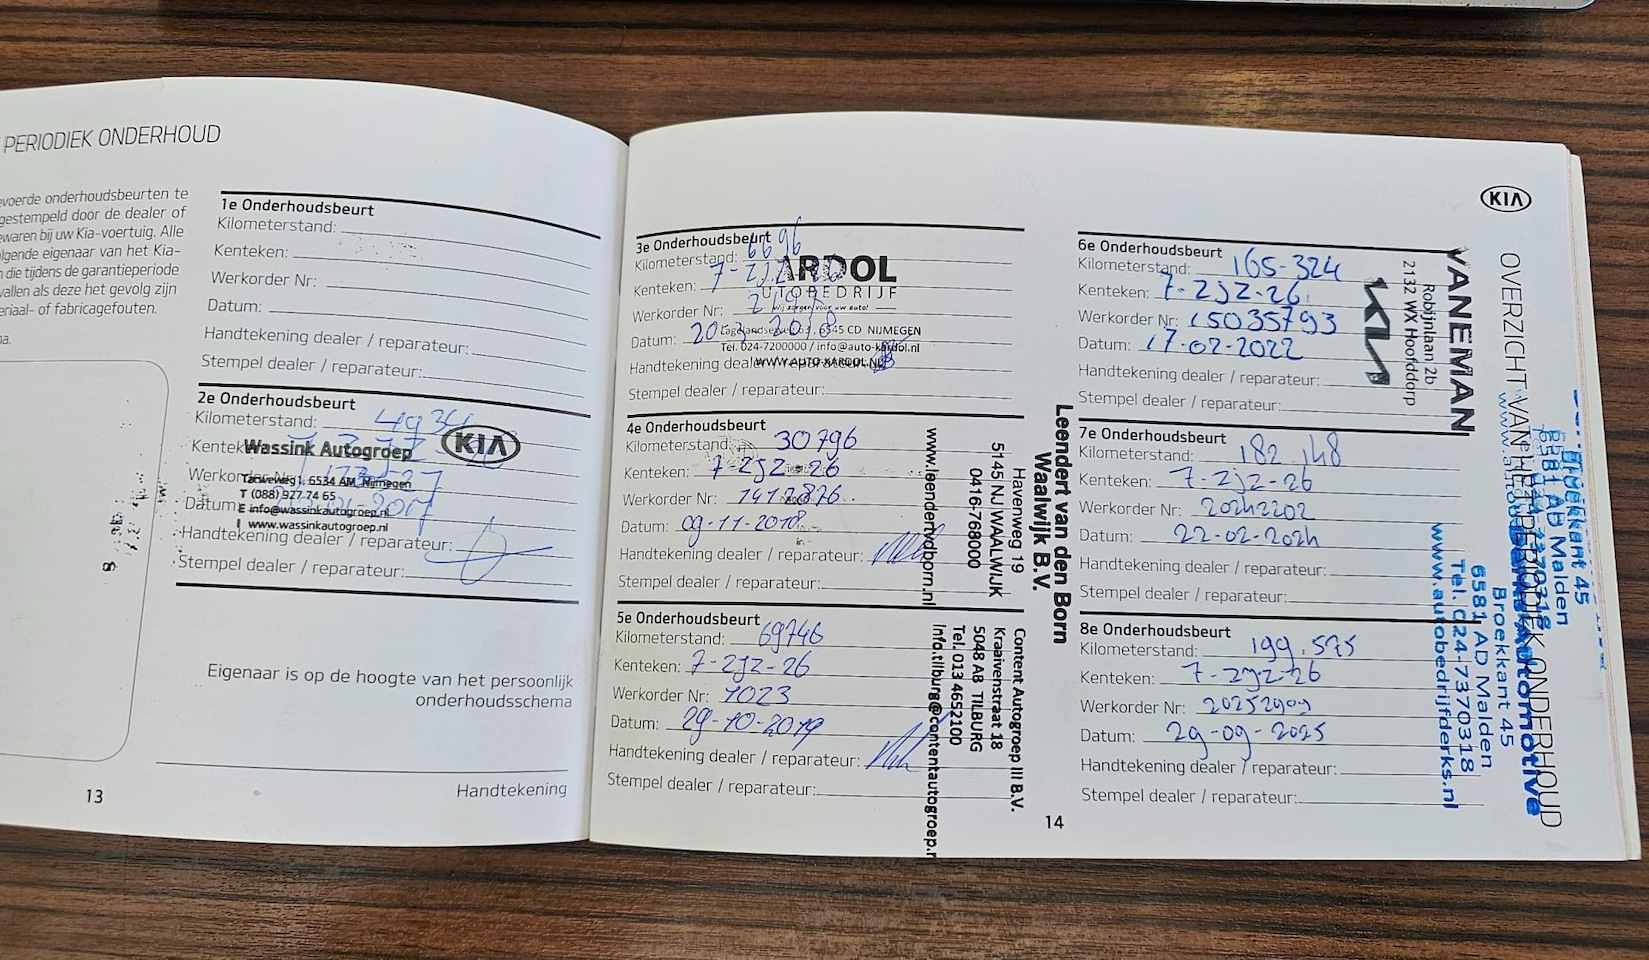 PERIODIEK ONDERHOUD
evoerde onderhoudsbeurten te
gestempeld door de dealer of
ewaren bij uw Kia-voertuig. Alle
lgende eigenaar van het Kia-
n die tijdens de garantieperiode
vallen als deze het gevolg zijn
eriaal- of fabricagefouten.
1e Onderhoudsbeurt
Kilometerstand:
Kenteken:
Werkorder Nr:
Datum:
Handtekening dealer / reparateur:
Stempel dealer / reparateur:
2e Onderhoudsbeurt
Kilometerstand:
Wassink Autogroep
KIA
Tarweweg 1, 6534 AM Nijmegen
T (088) 927 74 65
E info@wassinkautogroep.nl
I www.wassinkautogroep.nl
Datum:
Handtekening dealer / reparateur:
Stempel dealer / reparateur:
Eigenaar is op de hoogte van het persoonlijk
onderhoudsschema
Handtekening
13
3e Onderhoudsbeurt
Kilometerstand: 6696
Kenteken:
Werkorder Nr:
Datum: 20-3-2018
Handtekening dealer
Stempel dealer / reparateur:
ARDOL
UTOBEDRIJF
6545 CD NIJMEGEN
Tel. 024-7200000 / info@auto-kardol.nl
WWW.AUTO-KARDOL.NL
4e Onderhoudsbeurt
Kilometerstand: 30796
Kenteken: 7-ZJZ-26
Werkorder Nr:
Datum: 09-11-2018
Handtekening dealer / reparateur:
Stempel dealer / reparateur:
Leendert van den Born
Waalwijk B.V.
Havenweg 19
5145 NJ WAALWIJK
0416-768000
www.leendertvdborn.nl
5e Onderhoudsbeurt
Kilometerstand: 69746
Kenteken: 7-ZJZ-26
Werkorder Nr: 1023
Datum: 29-10-2019
Handtekening dealer / reparateur:
Stempel dealer / reparateur:
Content Autogroep III B.V.
Kraaivenstraat 18
5048 AB TILBURG
Tel. 013 4652100
info.tilburg@contentautogroep.n
14
KIA
OVERZICHT VAN HET PERIODIEK ONDERHOUD
6e Onderhoudsbeurt
Kilometerstand: 165-324
Kenteken: 7-ZJZ-26
Werkorder Nr: 15035793
Datum: 17-02-2022
Handtekening dealer / reparateur:
Stempel dealer / reparateur:
VANEMAN
Robijnlaan 2b
2132 WX Hoofddorp
KIA
7e Onderhoudsbeurt
Kilometerstand: 182.148
Kenteken: 7-ZJZ-26
Werkorder Nr: 20242202
Datum: 22-02-2024
Handtekening dealer / reparateur:
Stempel dealer / reparateur:
8e Onderhoudsbeurt
Kilometerstand: 199.575
Kenteken: 7-ZJZ-26
Werkorder Nr: 20252909
Datum: 29-09-2025
Handtekening dealer / reparateur:
Stempel dealer / reparateur:
Automotive
Broekkant 45
6581 AD Malden
Tel. 024-7370318
www.autobedrijfderks.nl
Broekkant 45
6581 AB Malden